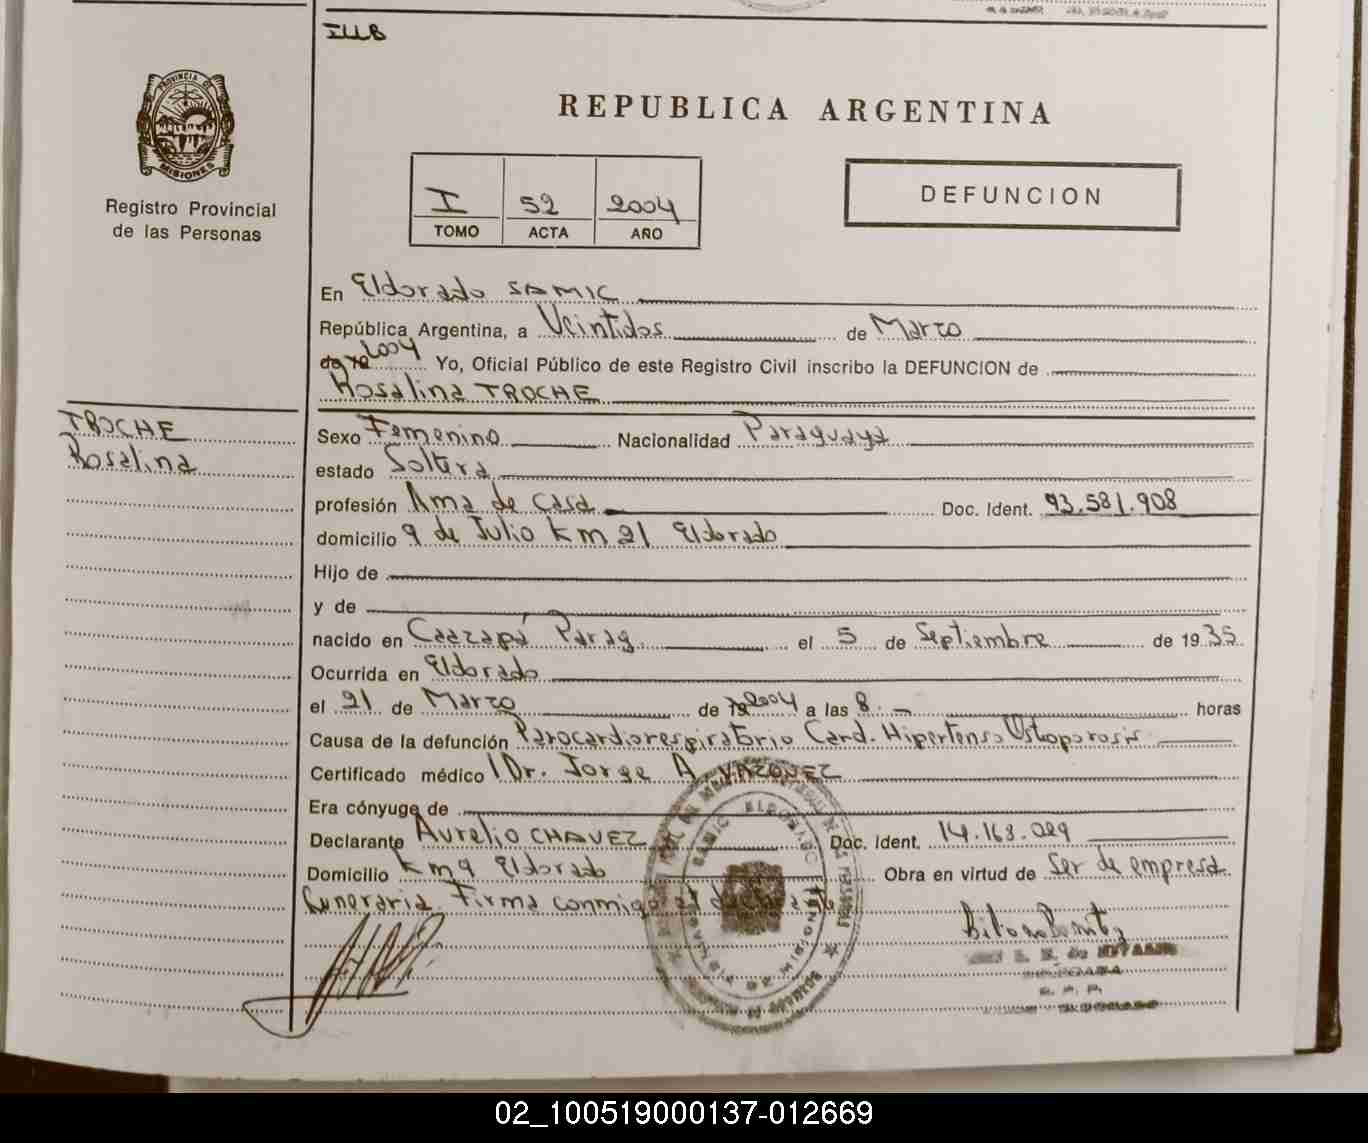 REPUBLICA ARGENTINA
PROVINCIA DE
MISIONES
Registro Provincial
de las Personas
I 52 2004
TOMO ACTA AÑO
DEFUNCION
En Eldorado SAMIC
República Argentina, a Veintidos de Marzo
de 19 2004 Yo, Oficial Público de este Registro Civil inscribo la DEFUNCION de
Rosalina TROCHE
TROCHE
Rosalina
Sexo Femenino Nacionalidad Paraguaya
estado Soltera
profesión Ama de casa Doc. Ident. 93.581.908
domicilio 9 de Julio km 21 Eldorado
Hijo de
y de
nacido en Caazapá Parag. el 5 de Septiembre de 1935
Ocurrida en Eldorado
el 21 de Marzo de 19 2004 a las 8.- horas
Causa de la defunción Parocardiorespiratorio Card. Hipertensa Ostoporosis
Certificado médico Dr. Jorge A VAZQUEZ
Era cónyuge de
Declarante Aurelio CHAVEZ Doc. Ident. 14.168.029
Domicilio km 9 Eldorado Obra en virtud de Ser de empresa
funeraria. Firma conmigo el declarante
SAMIC ELDORADO
02_100519000137-012669